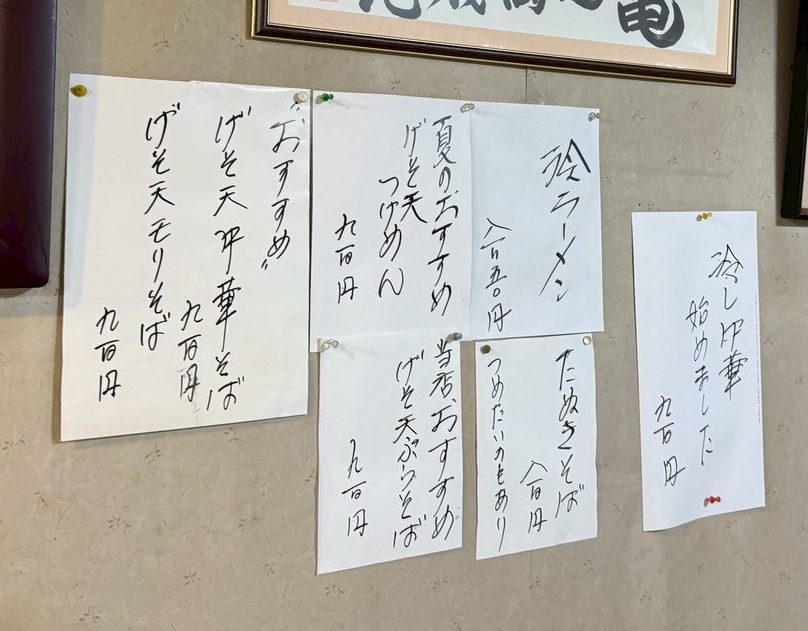 冷し中華
始めました
九百円
冷ラーメン
八百五〇円
夏のおすすめ
げそ天
つけめん
九百円
"おすすめ"
げそ天中華そば
九百円
げそ天モリそば
九百円
たぬきそば
八百円
つめたいのもあり
当店おすすめ
げそ天ぷらそば
九百円